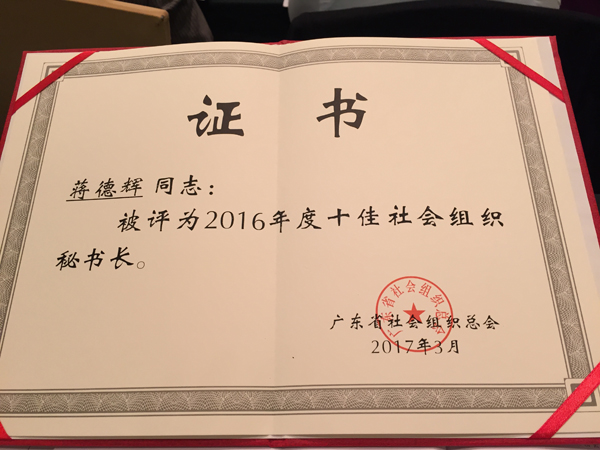 证 书
蒋德辉 同志：
被评为2016年度十佳社会组织
秘书长。
广东省社会组织总会
广东省社会组织总会
2017年3月